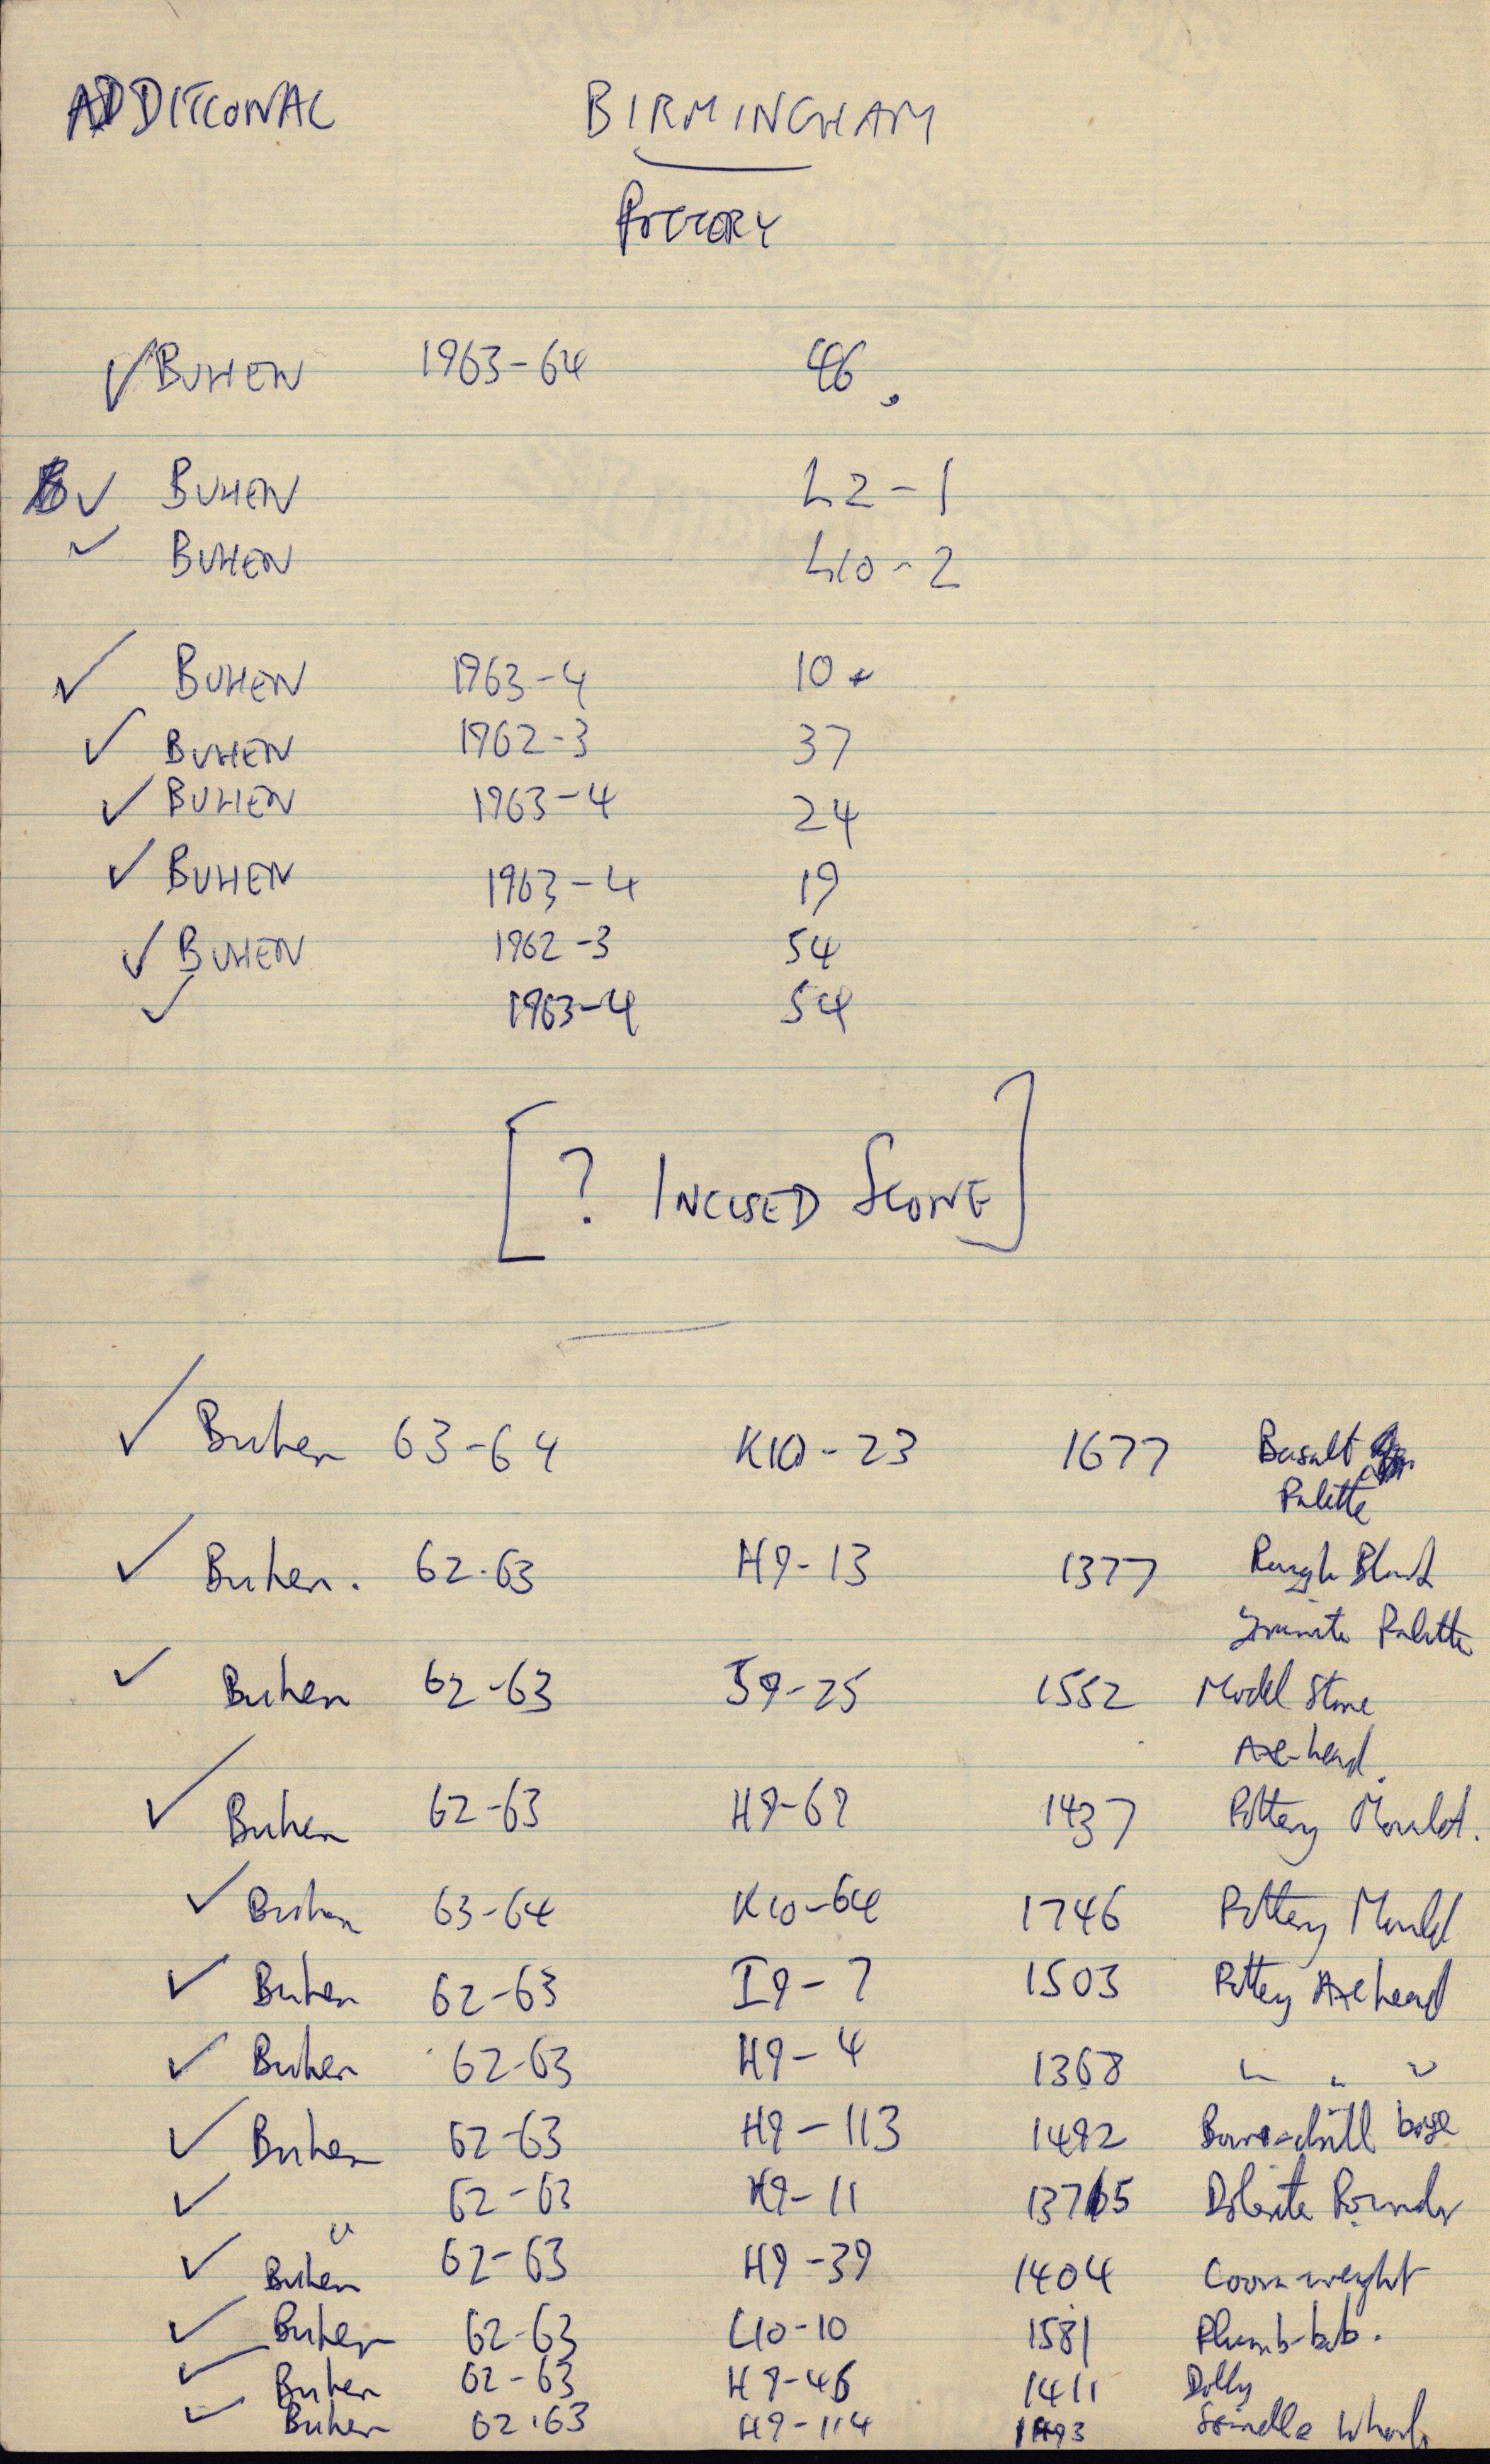 ADDITIONAL BIRMINGHAM
POTTERY
✓ BUHEN 1963-64 46.
✓ BUHEN L2-1
✓ BUHEN L10-2
✓ BUHEN 1963-4 10
✓ BUHEN 1962-3 37
✓ BUHEN 1963-4 24
✓ BUHEN 1963-4 19
✓ BUHEN 1962-3 54
✓ 1963-4 54
[? INCISED STONE]
✓ Buhen 63-64 K10-23 1677 Basalt
Palette
✓ Buhen. 62.63 H9-13 1377 Rough Black
Granite Palette
✓ Buhen 62-63 J9-25 1552 Model Stone
Axe-head.
✓ Buhen 62-63 H9-69 1437 Pottery Mould.
✓ Buhen 63-64 K10-64 1746 Pottery Mould
✓ Buhen 62-63 I9-7 1503 Pottery Axe head
✓ Buhen 62-63 H9-4 1368 " " "
✓ Buhen 62-63 H9-113 1492 Bow-drill base
✓ " 62-63 H9-11 1375 Dolerite Pounder
✓ Buhen 62-63 H9-39 1404 Loom-weight
✓ Buhen 62-63 L10-10 1581 Plumb-bob.
✓ Buhen 62-63 H9-46 1411 Dolly
✓ Buhen 62.63 H9-114 1493 Spindle Whorl